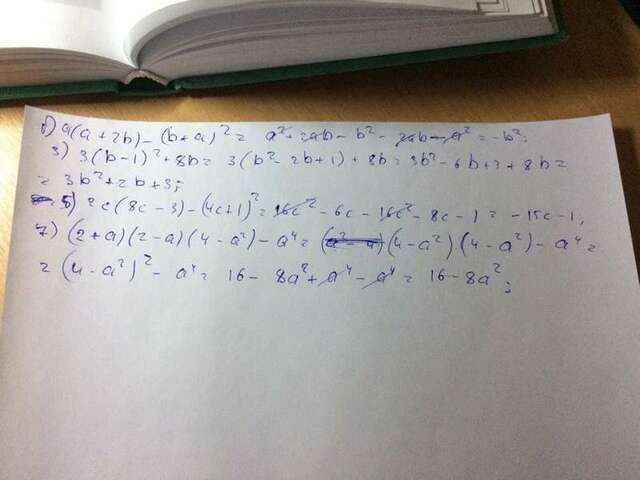 б) a(a+2b) - (b+a)² = a² + 2ab - b² - 2ab - a² = -b²;
3) 3(b-1)² + 8b = 3(b² - 2b + 1) + 8b = 3b² - 6b + 3 + 8b =
= 3b² + 2b + 3;
5) 2c(8c - 3) - (4c+1)² = 16c² - 6c - 16c² - 8c - 1 = -15c - 1,
7) (2+a)(2-a)(4-a²) - a⁴ = (4-a²)(4-a²) - a⁴ =
= (4-a²)² - a⁴ = 16 - 8a² + a⁴ - a⁴ = 16 - 8a²;